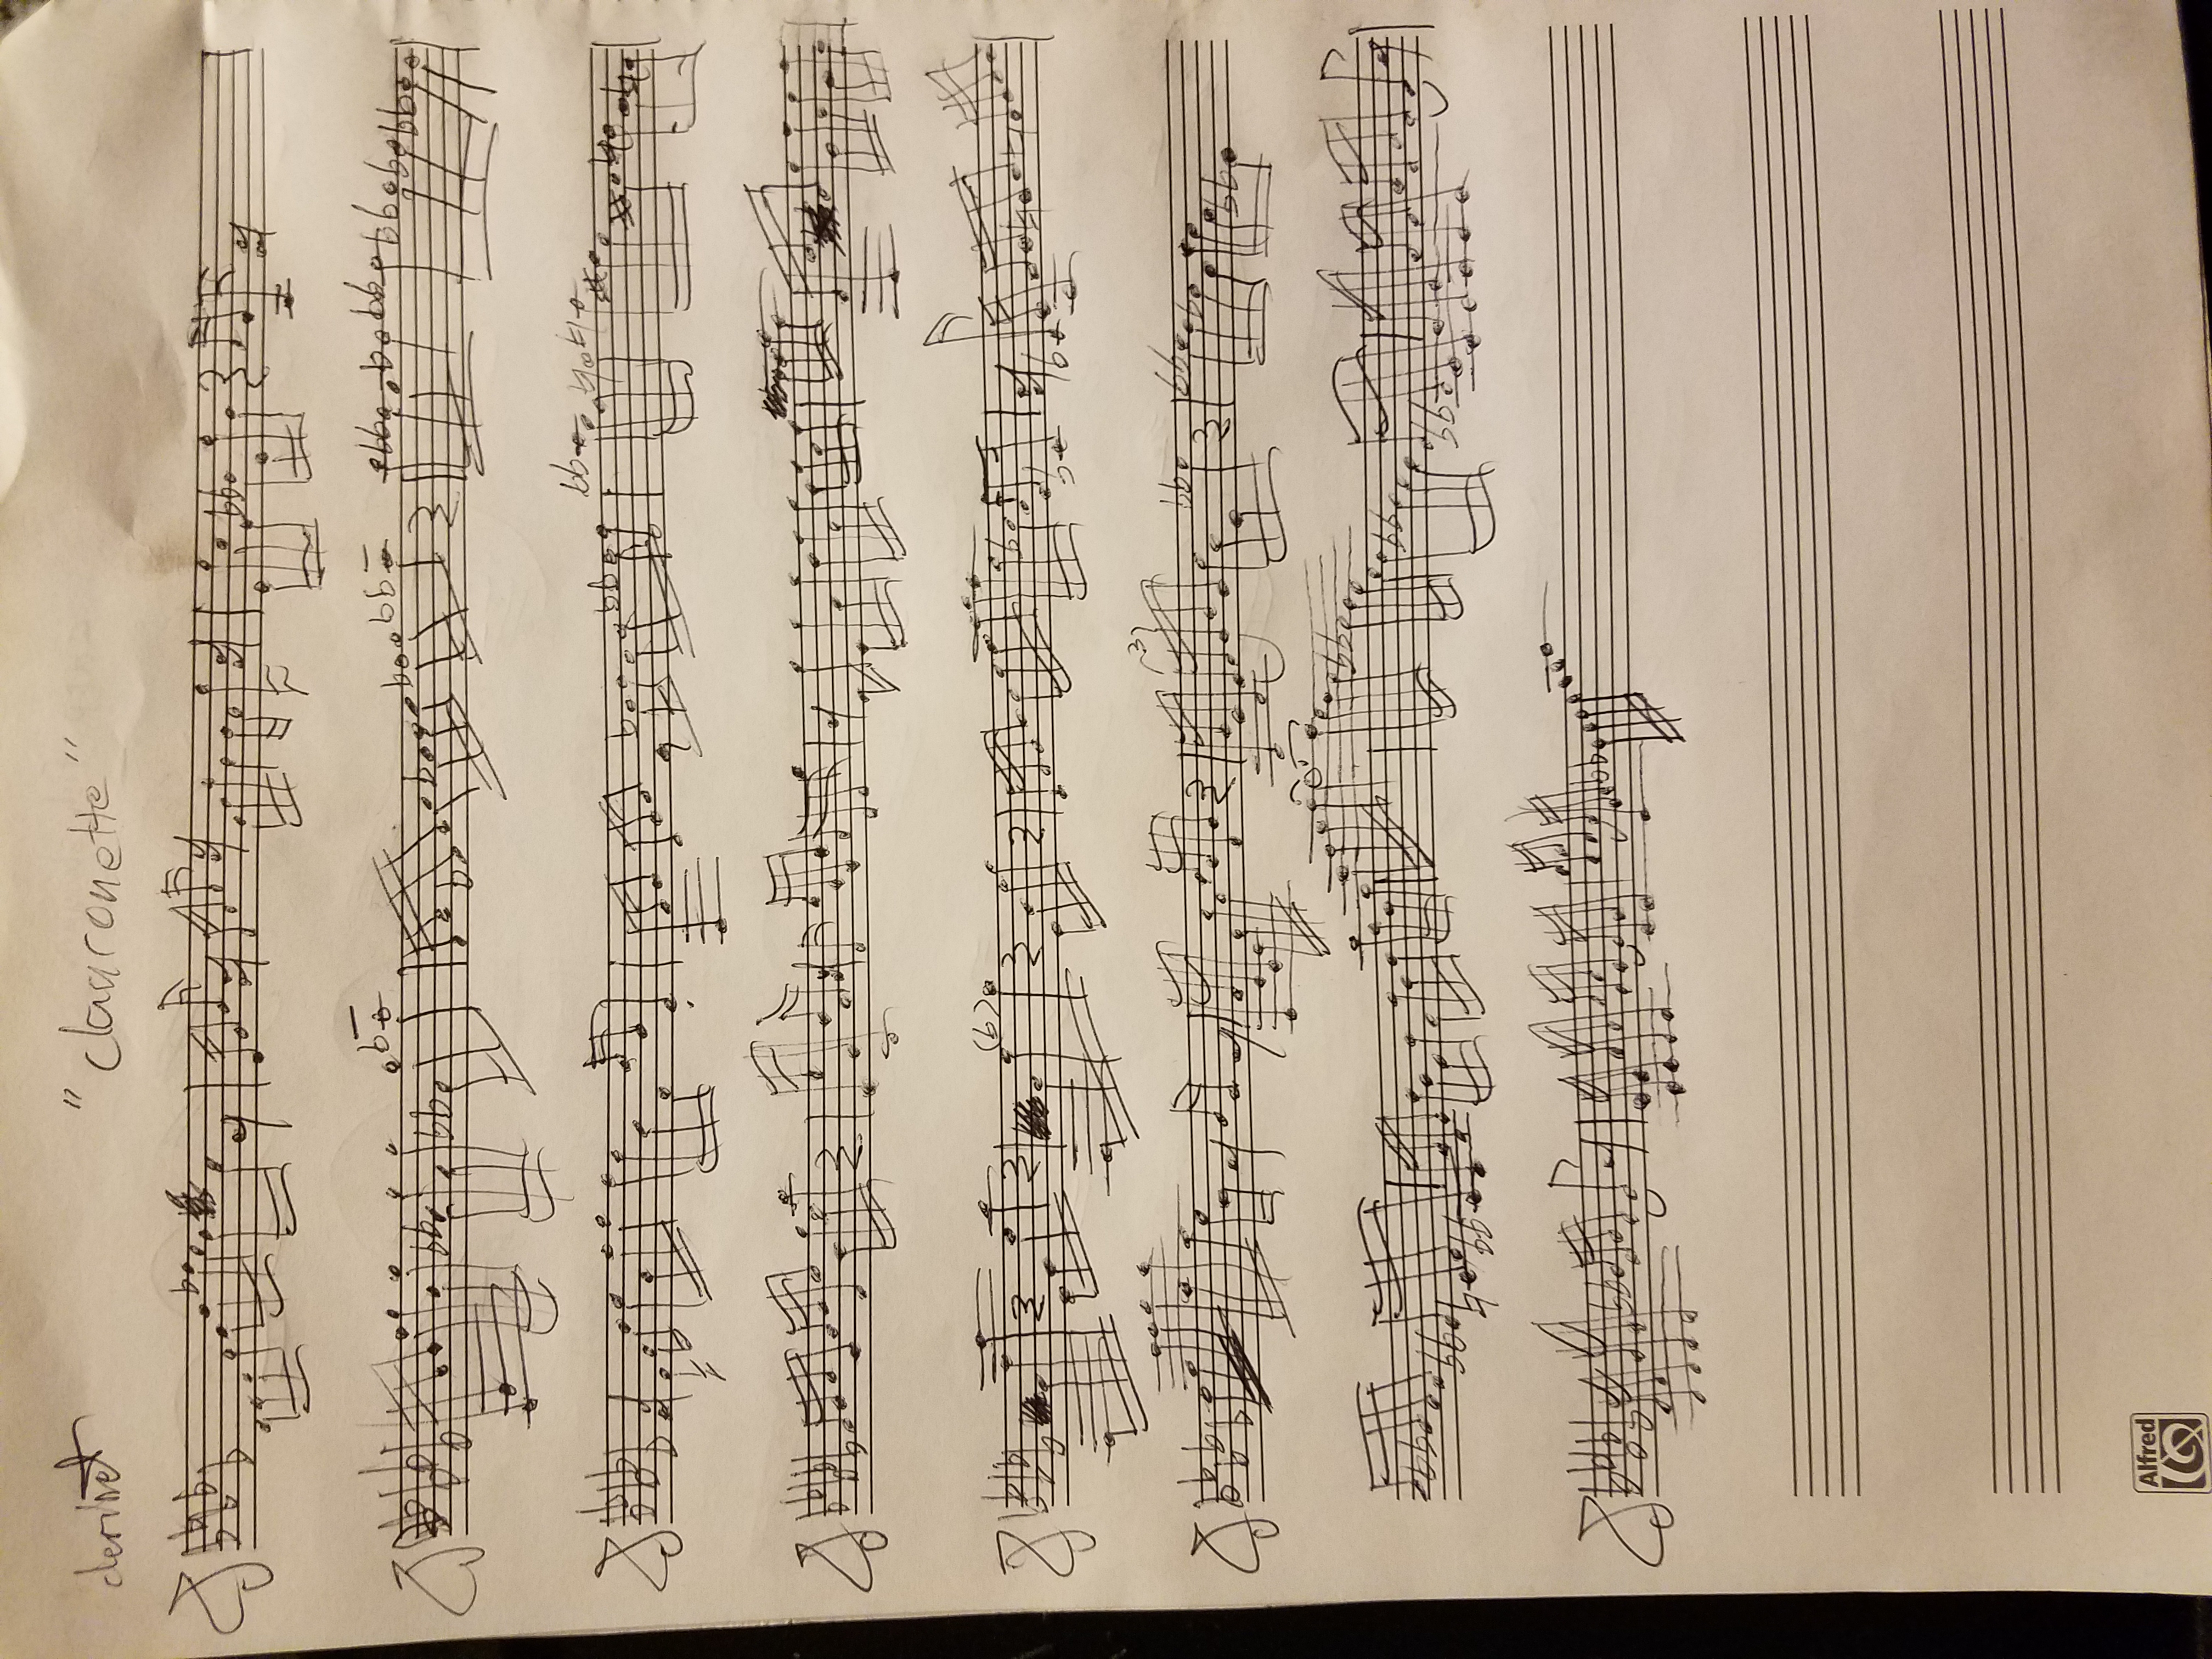 clerihet
"claaronette"
(b)
3
Alfred